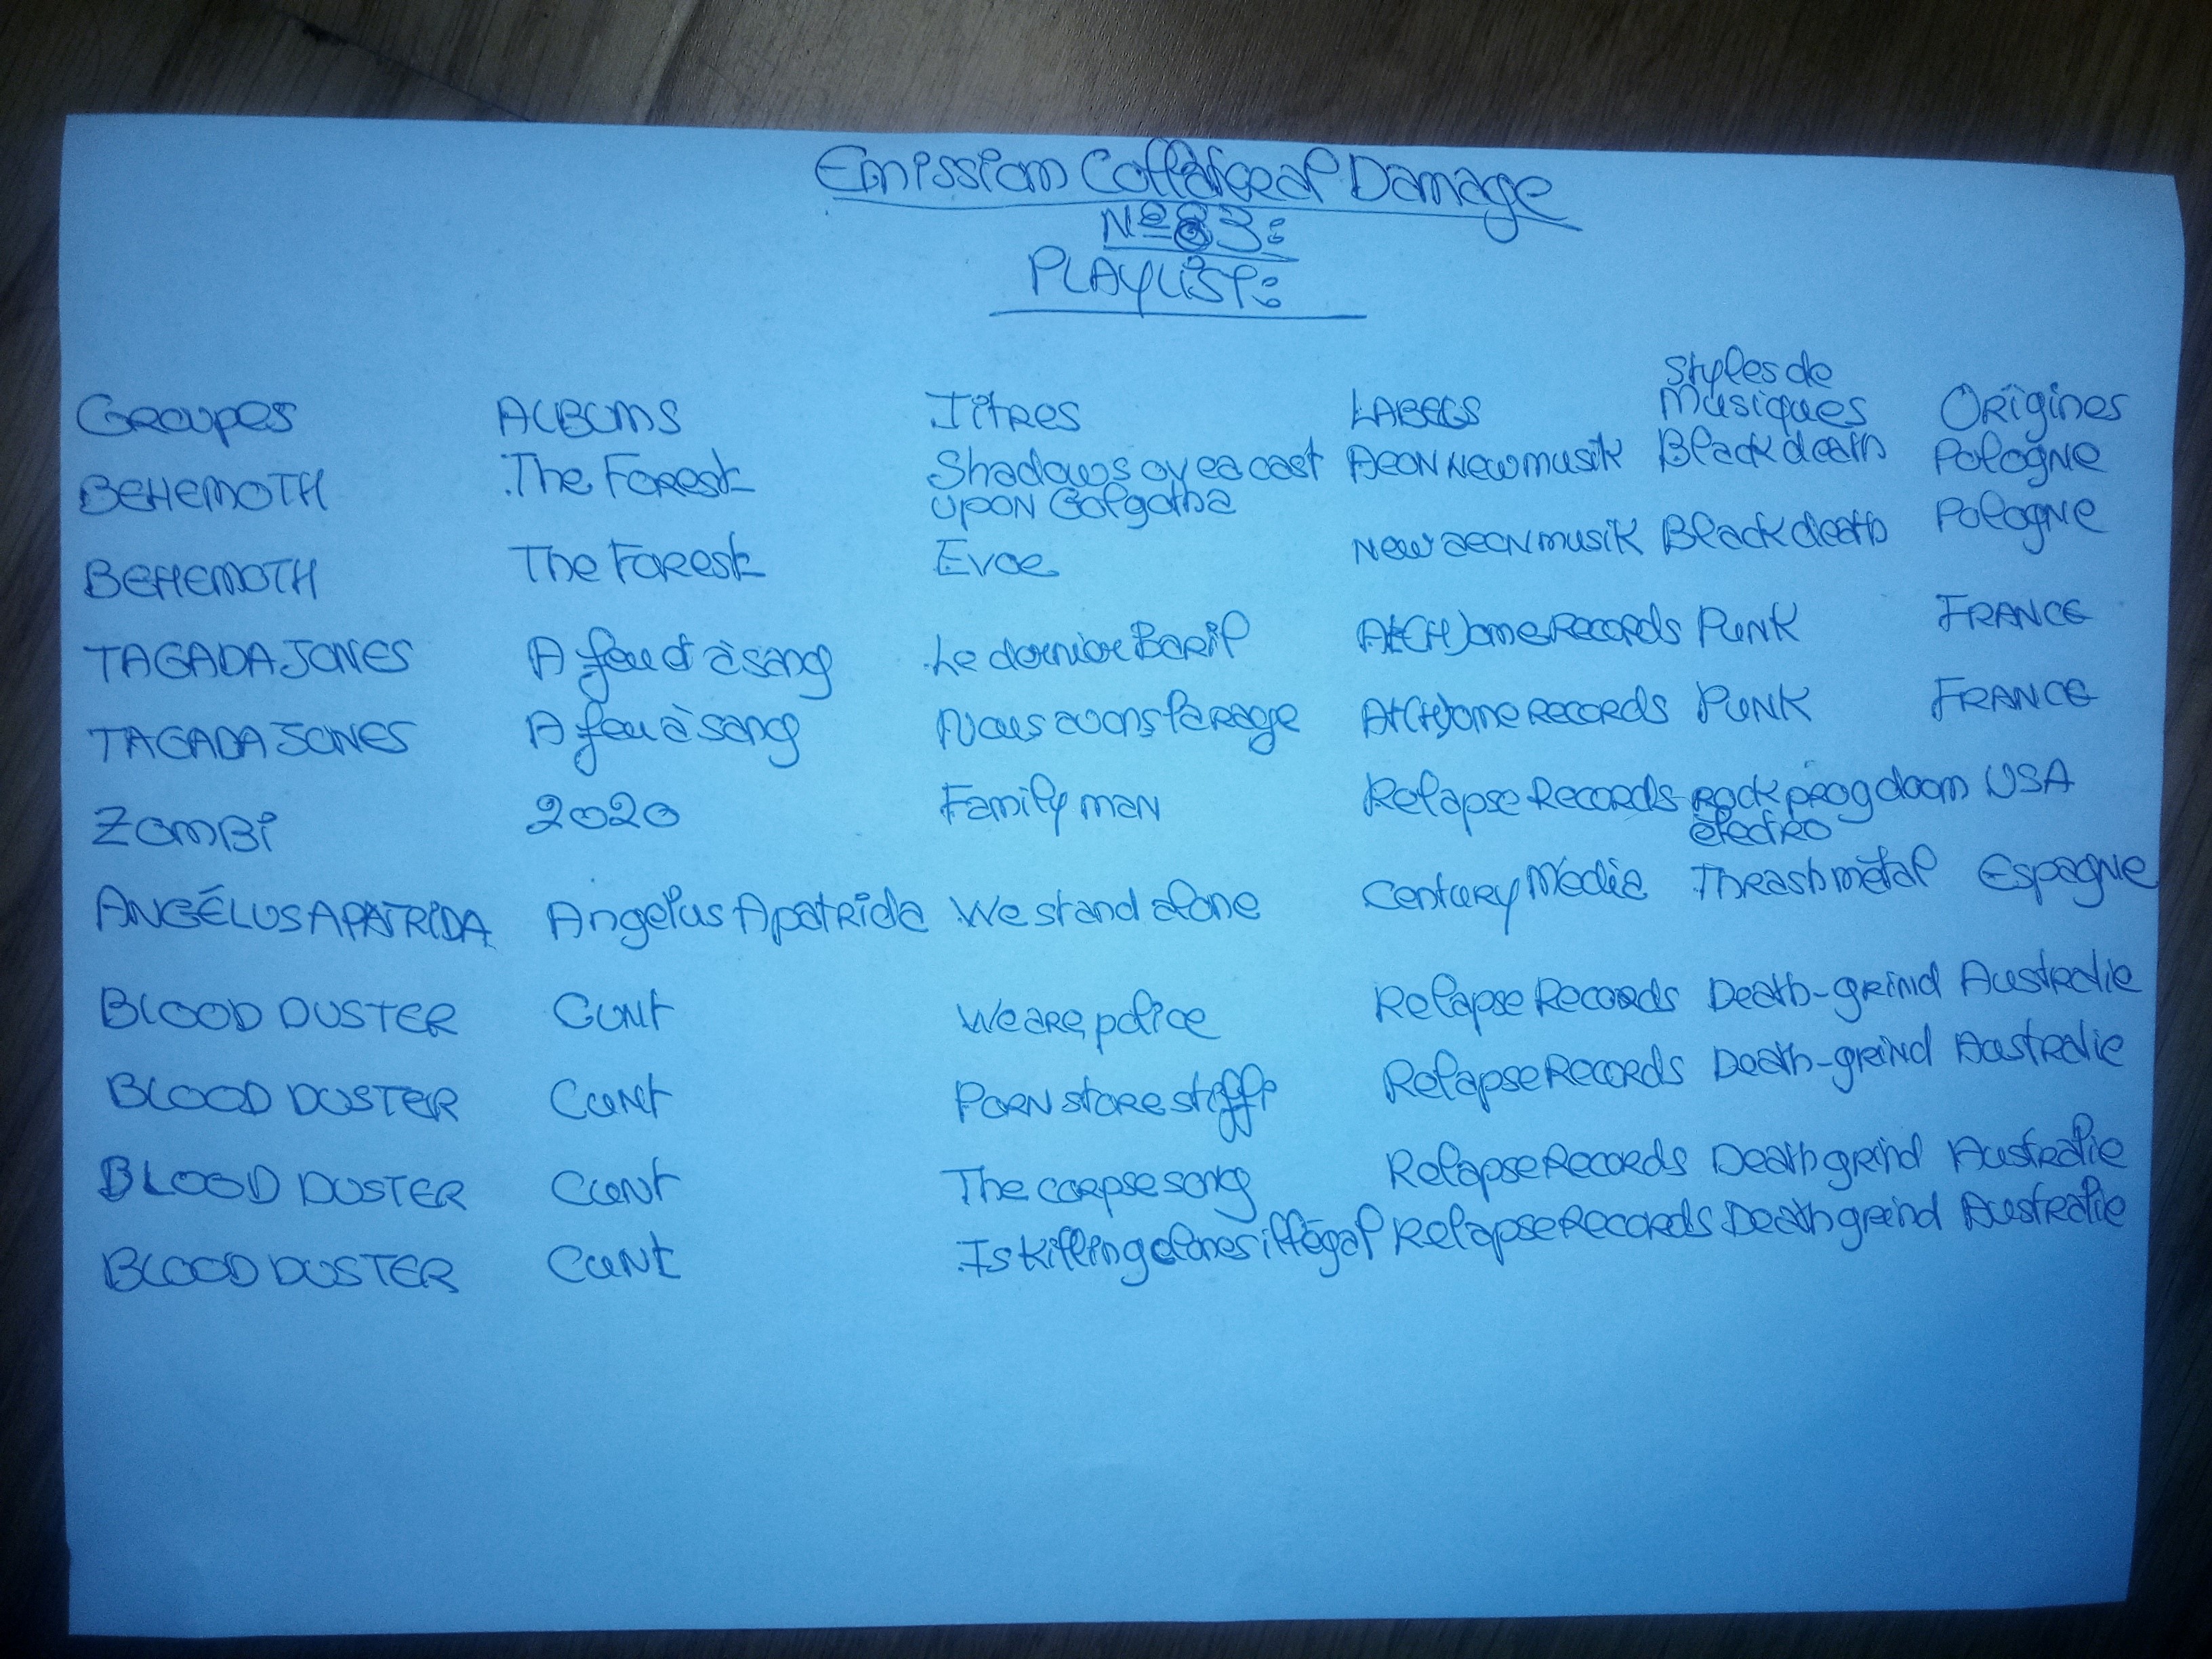 Emission Collateral Damage
N° 83:
PLAYLIST:
Groupes ALBUMS Titres LABELS Styles de Musiques Origines
BEHEMOTH The Forest Shadows ov ea cast upon Golgotha Aeon New musik Black death Pologne
BEHEMOTH The Forest Evoe New aeon musik Black death Pologne
TAGADA JONES A feu et à sang Le dernier Baril At(H)ome Records Punk FRANCE
TAGADA JONES A feu à sang Nous avons la rage At(H)ome records Punk FRANCE
ZOMBi 2020 Family man Relapse Records rock prog doom électro USA
ANGÉLUS APATRIDA Angelus Apatrida We stand alone Century Média Thrash métal Espagne
BLOOD DUSTER Cunt We are police Relapse Records Death-grind Australie
BLOOD DUSTER Cunt Porn store stiffi Relapse Records Death-grind Australie
BLOOD DUSTER Cunt The corpse song Relapse Records Death grind Australie
BLOOD DUSTER Cunt Is killing clones illégal Relapse Records Death grind Australie